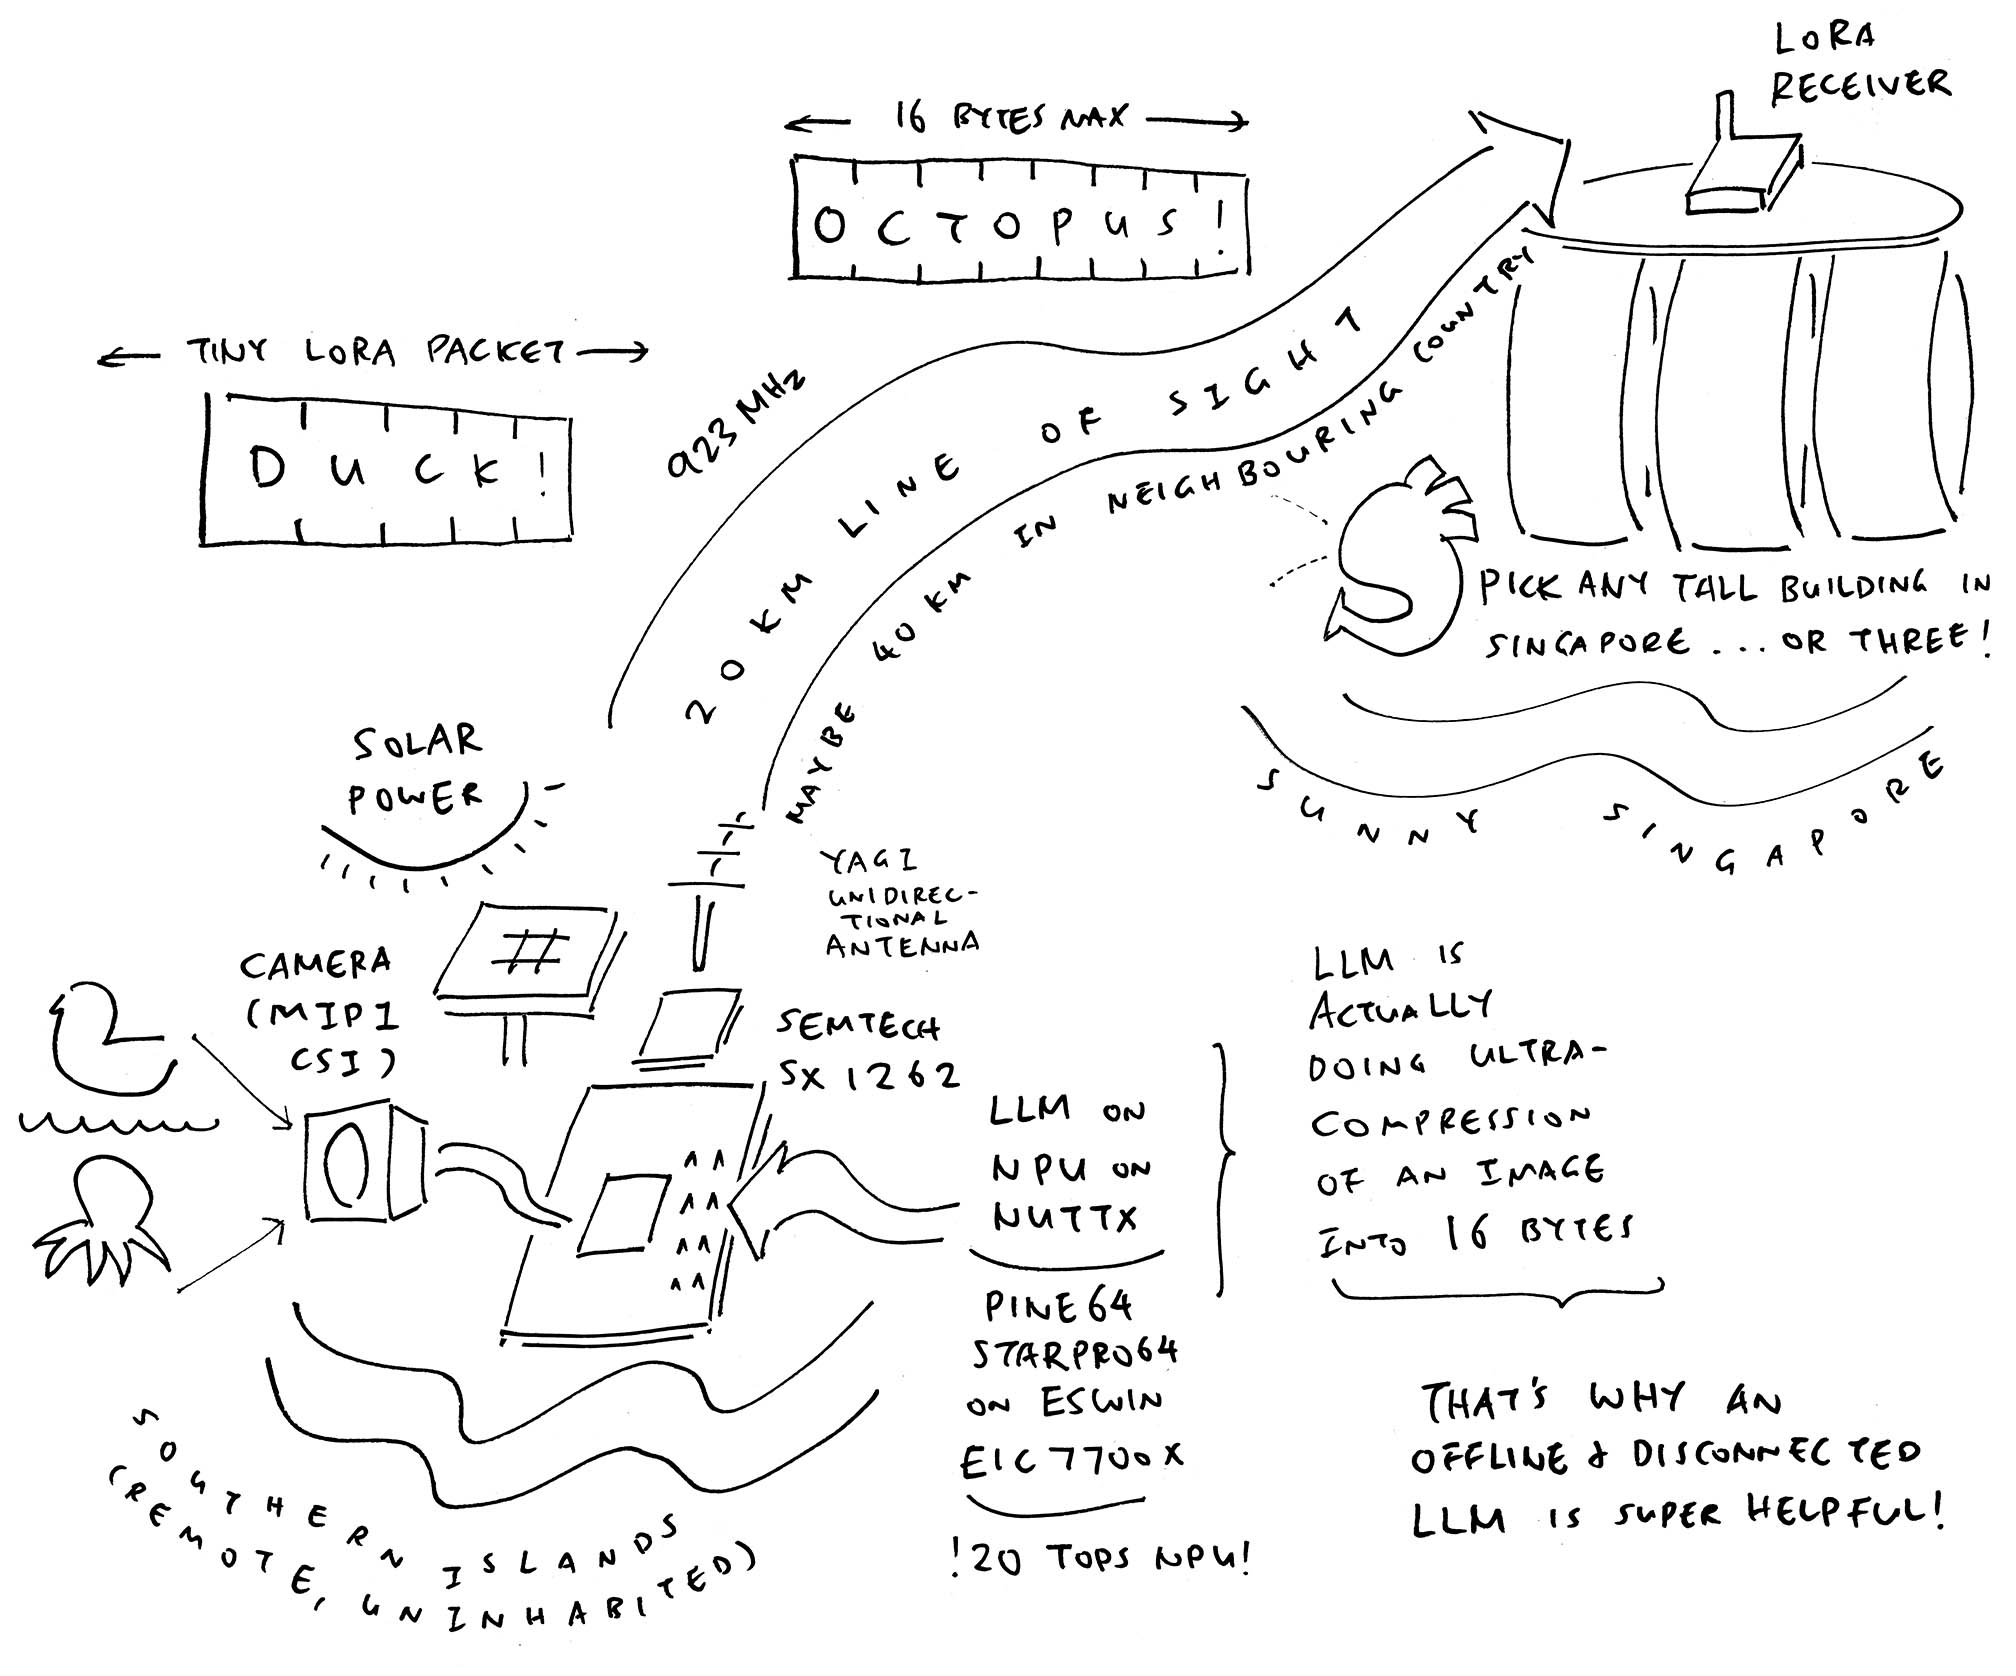 LORA
RECEIVER
← 16 BYTES MAX →
OCTOPUS!
← TINY LORA PACKET →
DUCK!
923 MHz
20 KM LINE OF SIGHT
MAYBE 40 KM IN NEIGHBOURING COUNTRY
PICK ANY TALL BUILDING IN
SINGAPORE ... OR THREE!
SUNNY SINGAPORE
SOLAR
POWER
YAGI
UNIDIREC-
TIONAL
ANTENNA
CAMERA
(MIPI
CSI)
SEMTECH
SX 1262
LLM ON
NPU ON
NUTTX
PINE64
STARPRO64
ON ESWIN
EIC 7700X
!20 TOPS NPU!
LLM IS
ACTUALLY
DOING ULTRA-
COMPRESSION
OF AN IMAGE
INTO 16 BYTES
THAT'S WHY AN
OFFLINE & DISCONNECTED
LLM IS SUPER HELPFUL!
SOUTHERN ISLANDS
(REMOTE, UNINHABITED)